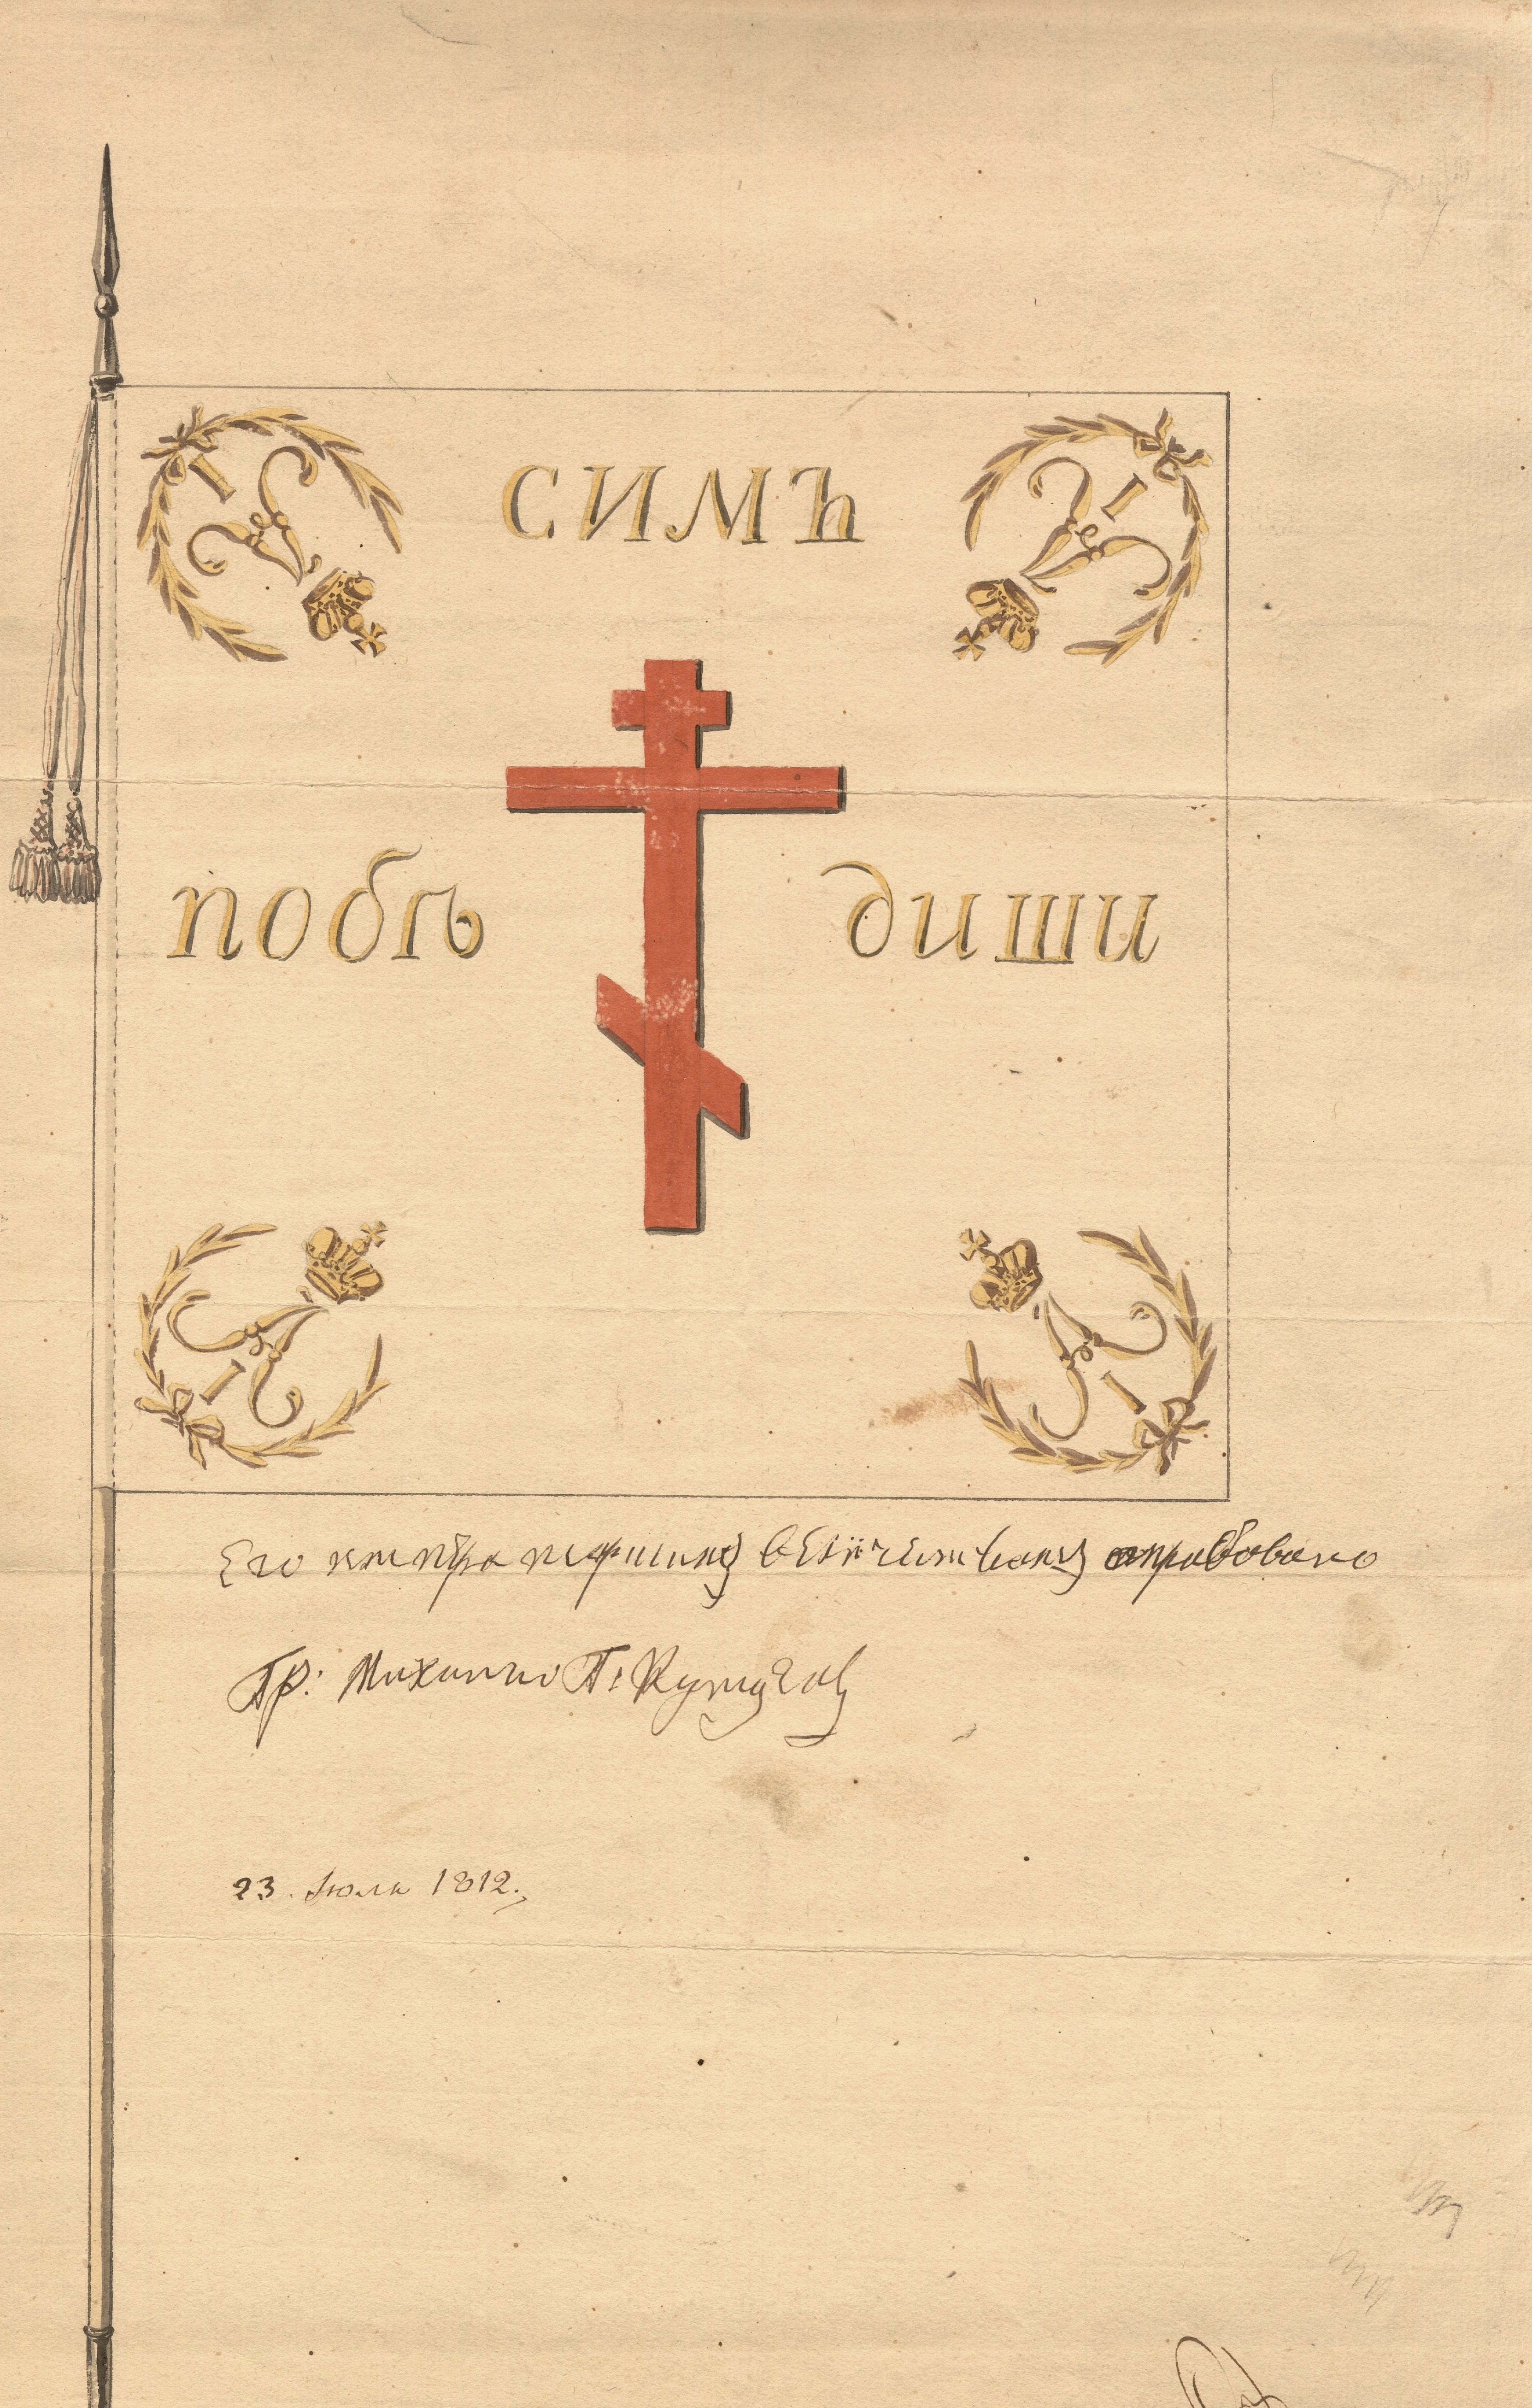 симъ
побѣ диши
Его императорскимъ величествомъ апробовано
Гр: Михаило Г: Кутузовъ
23. Июля 1812.